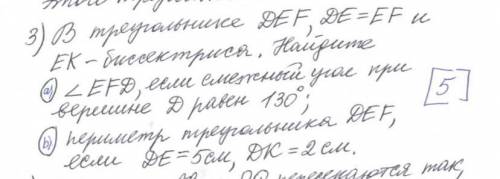 3) В треугольнике DEF, DE=EF и
EK-биссектриса. Найдите
a) ∠EFD, если смежный угол при
вершине D равен 130°;
b) периметр треугольника DEF,
если DE=5см, DK=2см.
[5]